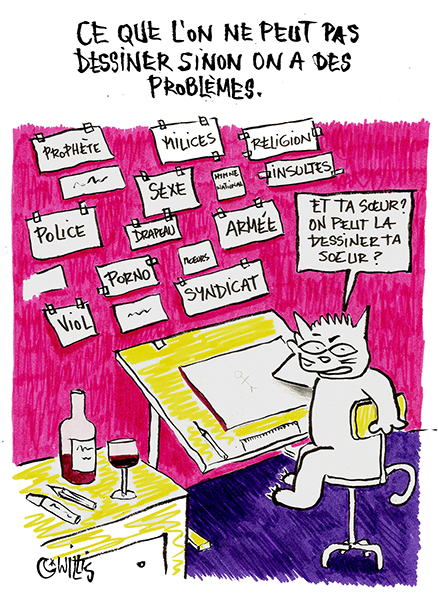 CE QUE L'ON NE PEUT PAS
DESSINER SINON ON A DES
PROBLÈMES.
PROPHÈTE
MILICES
RELIGION
INSULTES
SEXE
HYMNE
NATIONAL
POLICE
DRAPEAU
ARMÉE
MŒURS
PORNO
SYNDICAT
VIOL
ET TA SŒUR?
ON PEUT LA
DESSINER TA
SOEUR?
WILLIS